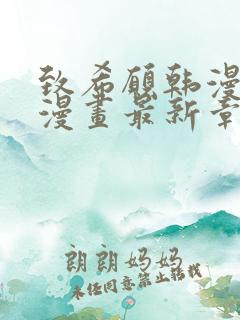 致希願韩漫
漫畫最新章
朗朗妈妈
未经同意禁止转载